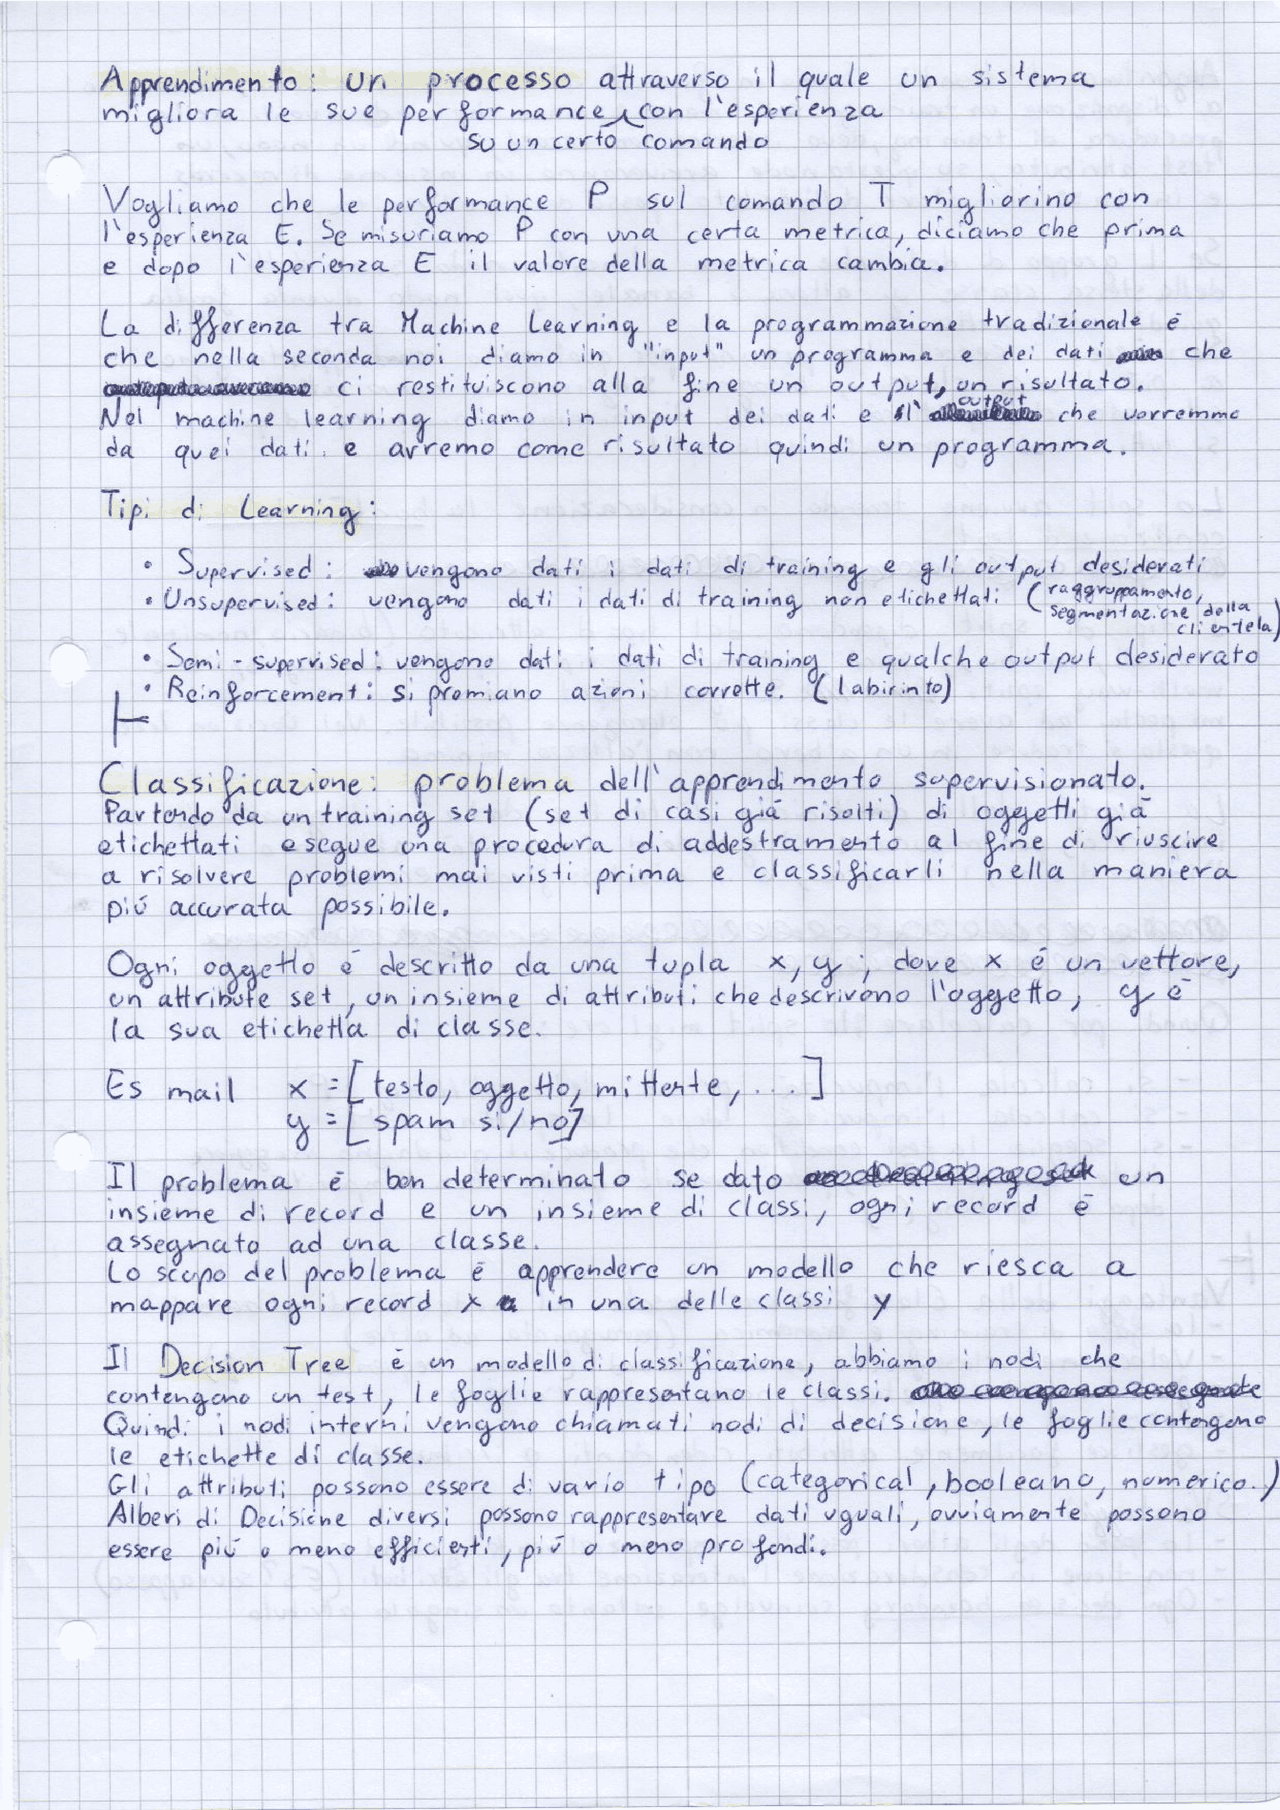 Apprendimento: un processo attraverso il quale un sistema
migliora le sue performance con l'esperienza
su un certo comando
Vogliamo che le performance P sul comando T migliorino con
l'esperienza E. Se misuriamo P con una certa metrica, diciamo che prima
e dopo l'esperienza E il valore della metrica cambia.
La differenza tra Machine Learning e la programmazione tradizionale è
che nella seconda noi diamo in "input" un programma e dei dati che
ci restituiscono alla fine un output, un risultato.
Nel machine learning diamo in input dei dati e l' output che vorremmo
da quei dati e avremo come risultato quindi un programma.
Tipi di Learning:
• Supervised: vengono dati i dati di training e gli output desiderati
• Unsupervised: vengono dati i dati di training non etichettati (raggruppamento,
segmentazione della
clientela)
• Semi-supervised: vengono dati i dati di training e qualche output desiderato
• Reinforcement: si premiano azioni corrette. (labirinto)
Classificazione: problema dell'apprendimento supervisionato.
Partendo da un training set (set di casi già risolti) di oggetti già
etichettati esegue una procedura di addestramento al fine di riuscire
a risolvere problemi mai visti prima e classificarli nella maniera
più accurata possibile.
Ogni oggetto è descritto da una tupla x, y; dove x è un vettore,
un attribute set, un insieme di attributi che descrivono l'oggetto, y è
la sua etichetta di classe.
Es mail x = [testo, oggetto, mittente, ...]
y = [spam si/no]
Il problema è ben determinato se dato un
insieme di record e un insieme di classi, ogni record è
assegnato ad una classe.
Lo scopo del problema è apprendere un modello che riesca a
mappare ogni record x in una delle classi y
Il Decision Tree è un modello di classificazione, abbiamo i nodi che
contengono un test, le foglie rappresentano le classi.
Quindi i nodi interni vengono chiamati nodi di decisione, le foglie contengono
le etichette di classe.
Gli attributi possono essere di vario tipo (categorical, booleano, numerico.)
Alberi di Decisione diversi possono rappresentare dati uguali, ovviamente possono
essere più o meno efficienti, più o meno profondi.